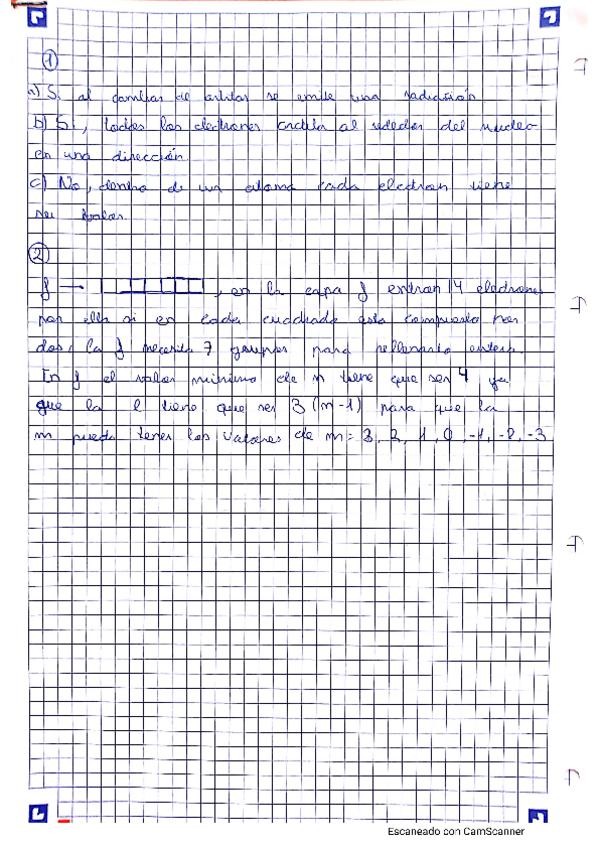 1
a) Si al cambiar de orbitas se emite una radiación
b) Si, todos los electrones orbita al rededor del nucleo
en una dirección
c) No, dentro de un atomo cada electron tiene
su valor.
2
f → , en la capa f entran 14 electrones
por ello si en cada cuadrado esta compuesto por
dos, la f necesita 7 grupos para rellenarlo entera.
En f el valor minimo de n tiene que ser 4, ya
que la l tiene que ser 3 (n-1) para que la
m pueda tener los valores de m= 3, 2, 1, 0, -1, -2, -3
Escaneado con CamScanner